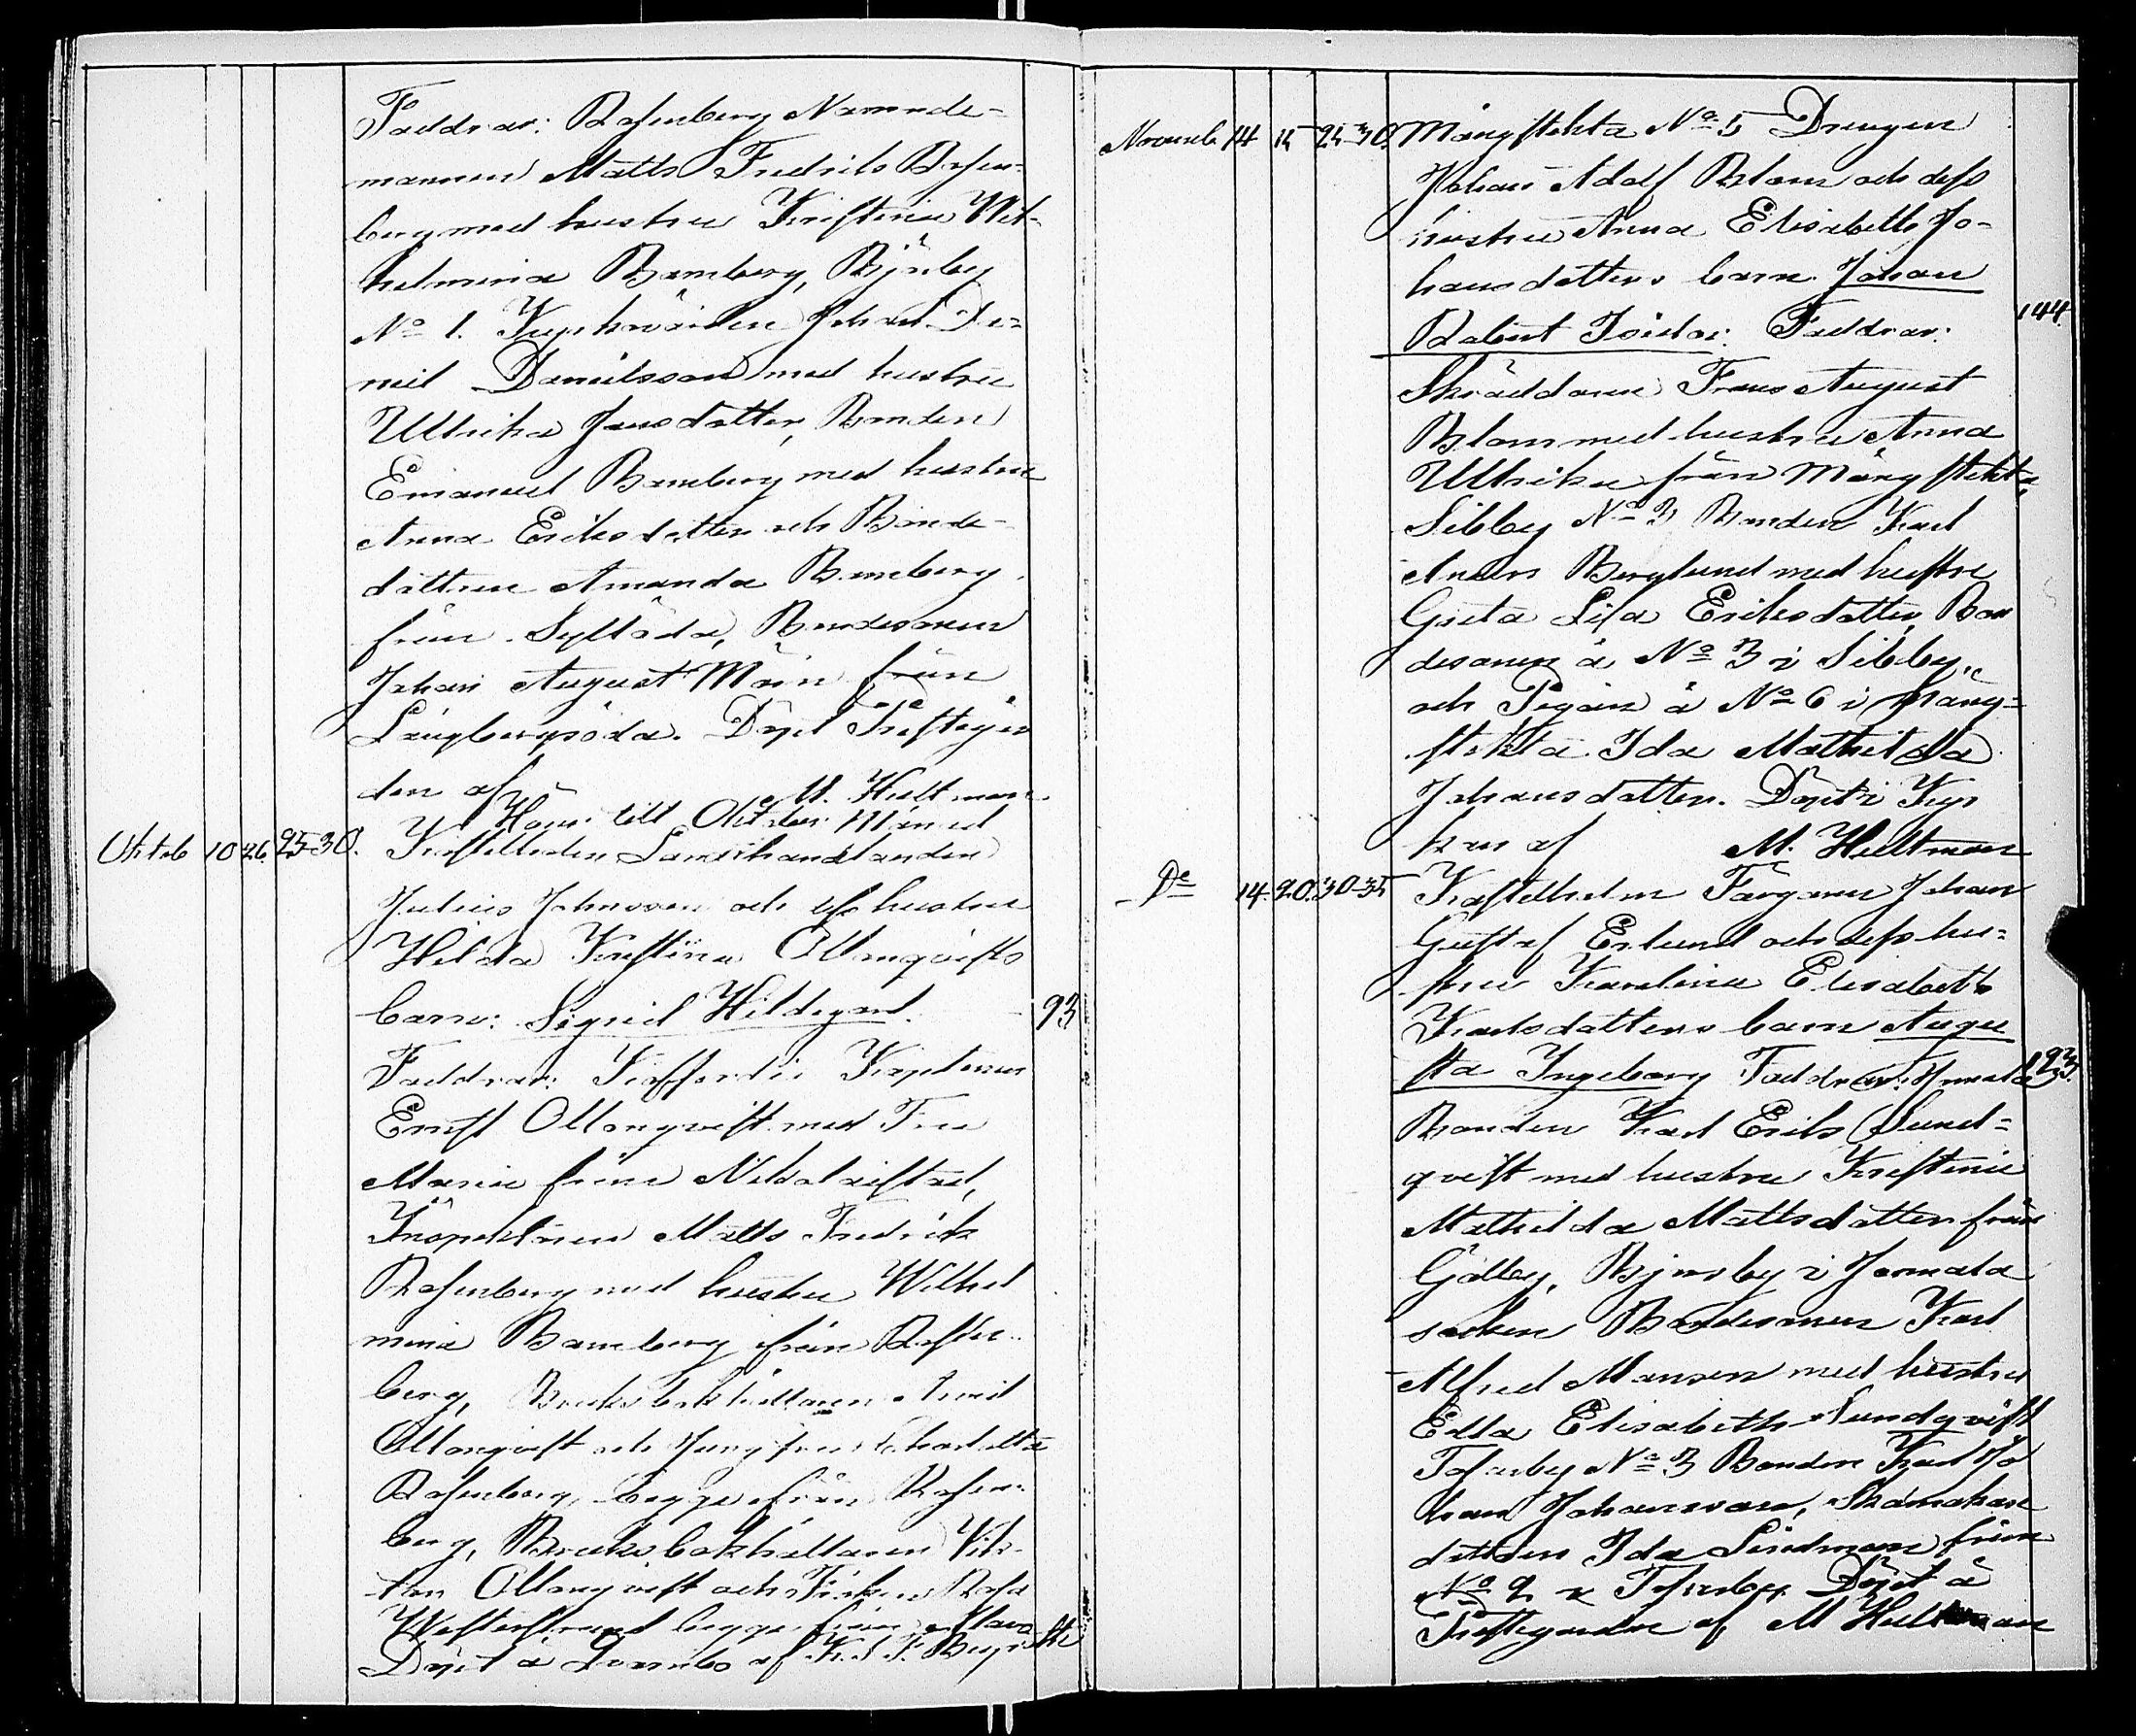 Faddrar: Rosenberg Nämnde-
mannen Matts Fredrik Rosen-
berg med hustru Kristina Wil-
helmina Bamberg, Björby
No 1. Kyrkovärden Johan Da-
niel Danielsson med hustru
Ulrika Jansdotter, Bonden
Emanuel Bamberg med hustru
Anna Eriksdotter och Bonde-
dottren Amanda Bamberg
från Syllöda, Bondesonen
Johan August Mörn från
Långbergsöda. Döpt Prestgår
den af M. Hultman
Hörer till Oktober Månad
Oktob 10 26. 25-30. Kastelholm Landthandlanden
Julius Johnsson och dess hustru
Hilda Kristina Allmqvists
barn: Sigrid Hildegard. 93
Faddrar: Kaptenen
Ernst Allmqvist med Fru
Maria från Nikolaistad,
Inspektoren Matts Fredrik
Rosenberg med hustru Wilhel
mina Bamberg från Rosen-
berg, Bruksbokhållaren Arvid
Allmqvist och Jungfrun Charlotta
Rosenberg, begge från Rosen-
berg, Bruksbokhållaren Vik-
tor Allmqvist och Fröken Rosa
Westerstrand begge från
Döpt å af K. J. F.
Novemb. 14 15 25-30. Mångstekta No 5 Drengen
Johan Adolf Blom och dess
hustru Anna Elisabeth Jo-
hansdotters barn Johan
Robert Isidor: Faddrar: 144.
Skräddaren Frans August
Blom med hustru Anna
Ulrika från Mångstekta,
Sibby No 3 Bonden Karl
Anders Berglund med hustru
Greta Lisa Eriksdotter, Bon
desonen å No 3 i Sibby,
och Pigan å No 6 i Mång-
stekta Ida Mathilda
Johansdotter. Döpt i Kyr
kan af M. Hultman
Do 14. 20. 30-35 Kastelholm Färgaren Johan
Gustaf Erlund och dess hu-
stru Karolina Elisabeth
Karlsdotters barn Augu
sta Ingeborg Faddrar: Jomala 93.
Bonden Karl Erik Sund-
qvist med hustru Kristina
Mathilda Mattsdotter från
Gölby, Björsby i Jomala
socken Bondesonen Karl
Alfred Mansen med hustru
Edla Elisabeth Sundqvist
Tosarby No 3 Bonden Karl Jo
han Johansson, Skomakare
dottren Ida Lindman från
No 9 i Tosarby. Döpt å
Prestgården af M Hultman